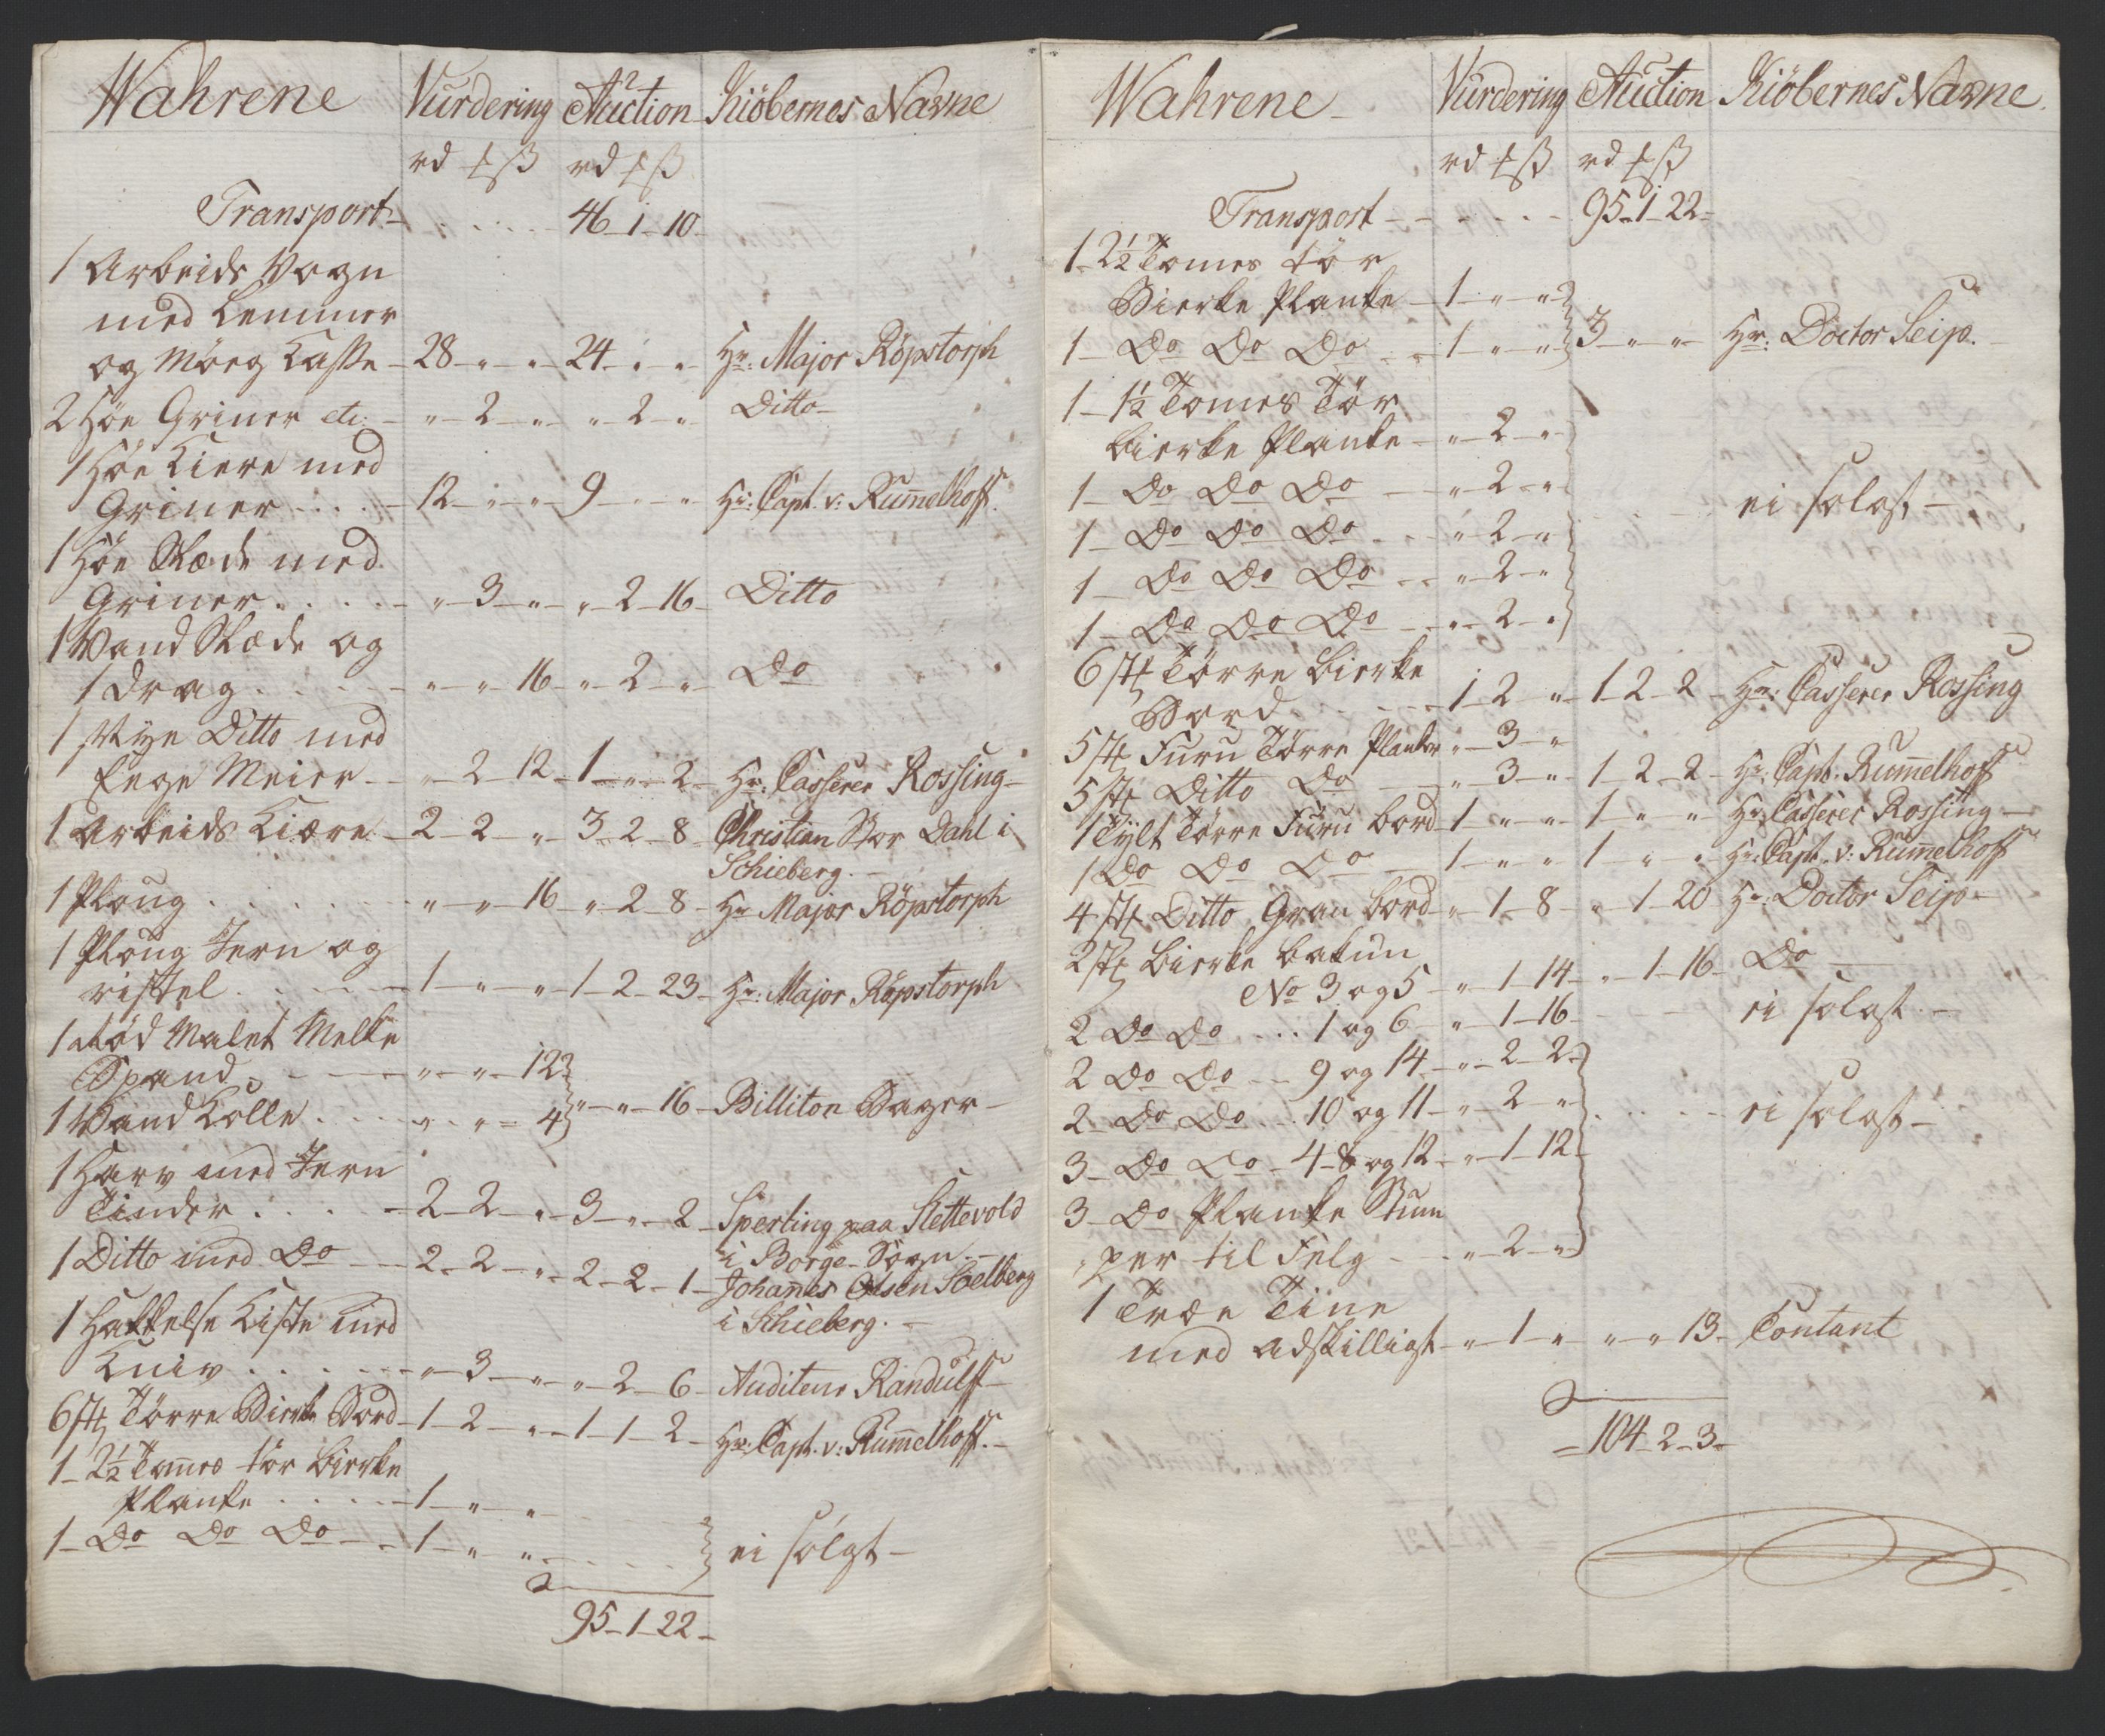 Wahrene Vurdering Auction Kiöbernes Navne
rd ß rd ß
Transport 46 1 10
1 Arbeids Vogn
med Lemmer
og Mörg Kasse 28 " " 24 " " Hr: Major Röpstorph
2 Höe Griner etc: " 2 " " 2 " Ditto
1 Höe Kiere med
Griner 12 " " 9 " " Hr: Capt. v: Rumelhoff.
1 Höe Slæde med
Griner " 3 " " 2 16 Ditto
1 Vand Slæde og
1 Drag " " 16 " 2 " Do
1 Nye Ditto med
Ege Meier " 2 12 1 " 2 Hr: Casserer Rossing
1 Arbeids Kiære 2 2 " 3 2 8 Christian Stor Dahl i
Schieberg.
1 Ploug " " 16 " 2 8 Hr Major Röpstorph
1 Ploug Jern og
ristel 1 " " 1 2 23 Hr: Major Röpstorph
1 Rød Malet Melke
Spand " " 12
1 Vand Kolle " " 4 " " 16 Billiton Bager
1 Harv med Jern
Tinder 2 2 " 3 " 2 Sperling paa Slettevold
i Borge Sogn.
1 Ditto med Do 2 2 " 2 2 1 Johanes Olsen Soelberg
i Schieberg.
1 Hakkelse Kiste med
Kniv " 3 " " 2 6 Auditeur Randulff
6 st Törre Birke Bord 1 2 " 1 1 2 Hr: Capt. v: Rumelhoff.
1 2½ Tomes tör Bierke
Planke 1 " "
1 Do Do Do 1 " " ei solgt
95 1 22

Wahrene Vurdering Auction Kiöbernes Navne.
rd ß rd ß
Transport 95 1 22
1 2½ Tomes tör
Bierke Planke 1 " "
1 Do Do Do 1 " " 3 " " Hr: Doctor Seip.
1 1½ Tomes Tör
bierke Planke " 2 "
1 Do Do Do " 2 " ei solgt
1 Do Do Do " 2 "
1 Do Do Do " 2 "
1 Do Do Do " 2 "
6 st Törre bierke
Bord 1 2 " 1 2 2 Hr: Casserer Rossing
5 st Furu Törre Planker " 3 "
5 st Ditto Do " 3 " 1 2 2 Hr: Capt. Rumelhoff
1 Tylt Törre Furu bord 1 " " 1 " " Hr: Casserer Rossing
1 Do Do Do 1 " " 1 " " Hr: Capt. v: Rumelhoff
4 st Ditto Gran bord " 1 8 " 1 20 Hr: Doctor Seip
2 st bierke bakun
No 3 og 5 " 1 14 " 1 16 Do
2 Do Do 1 og 6 " 1 16 ei solgt
2 Do Do 9 og 14 " 2 2
2 Do Do 10 og 11 " 2 " ei solgt
3 Do Do 4 8 og 12 " 1 12
3 Do Planke Stum
per til Felg " 2 "
1 Træe Tine
med adskilligt " 1 " " " 13 Contant
104 2 3